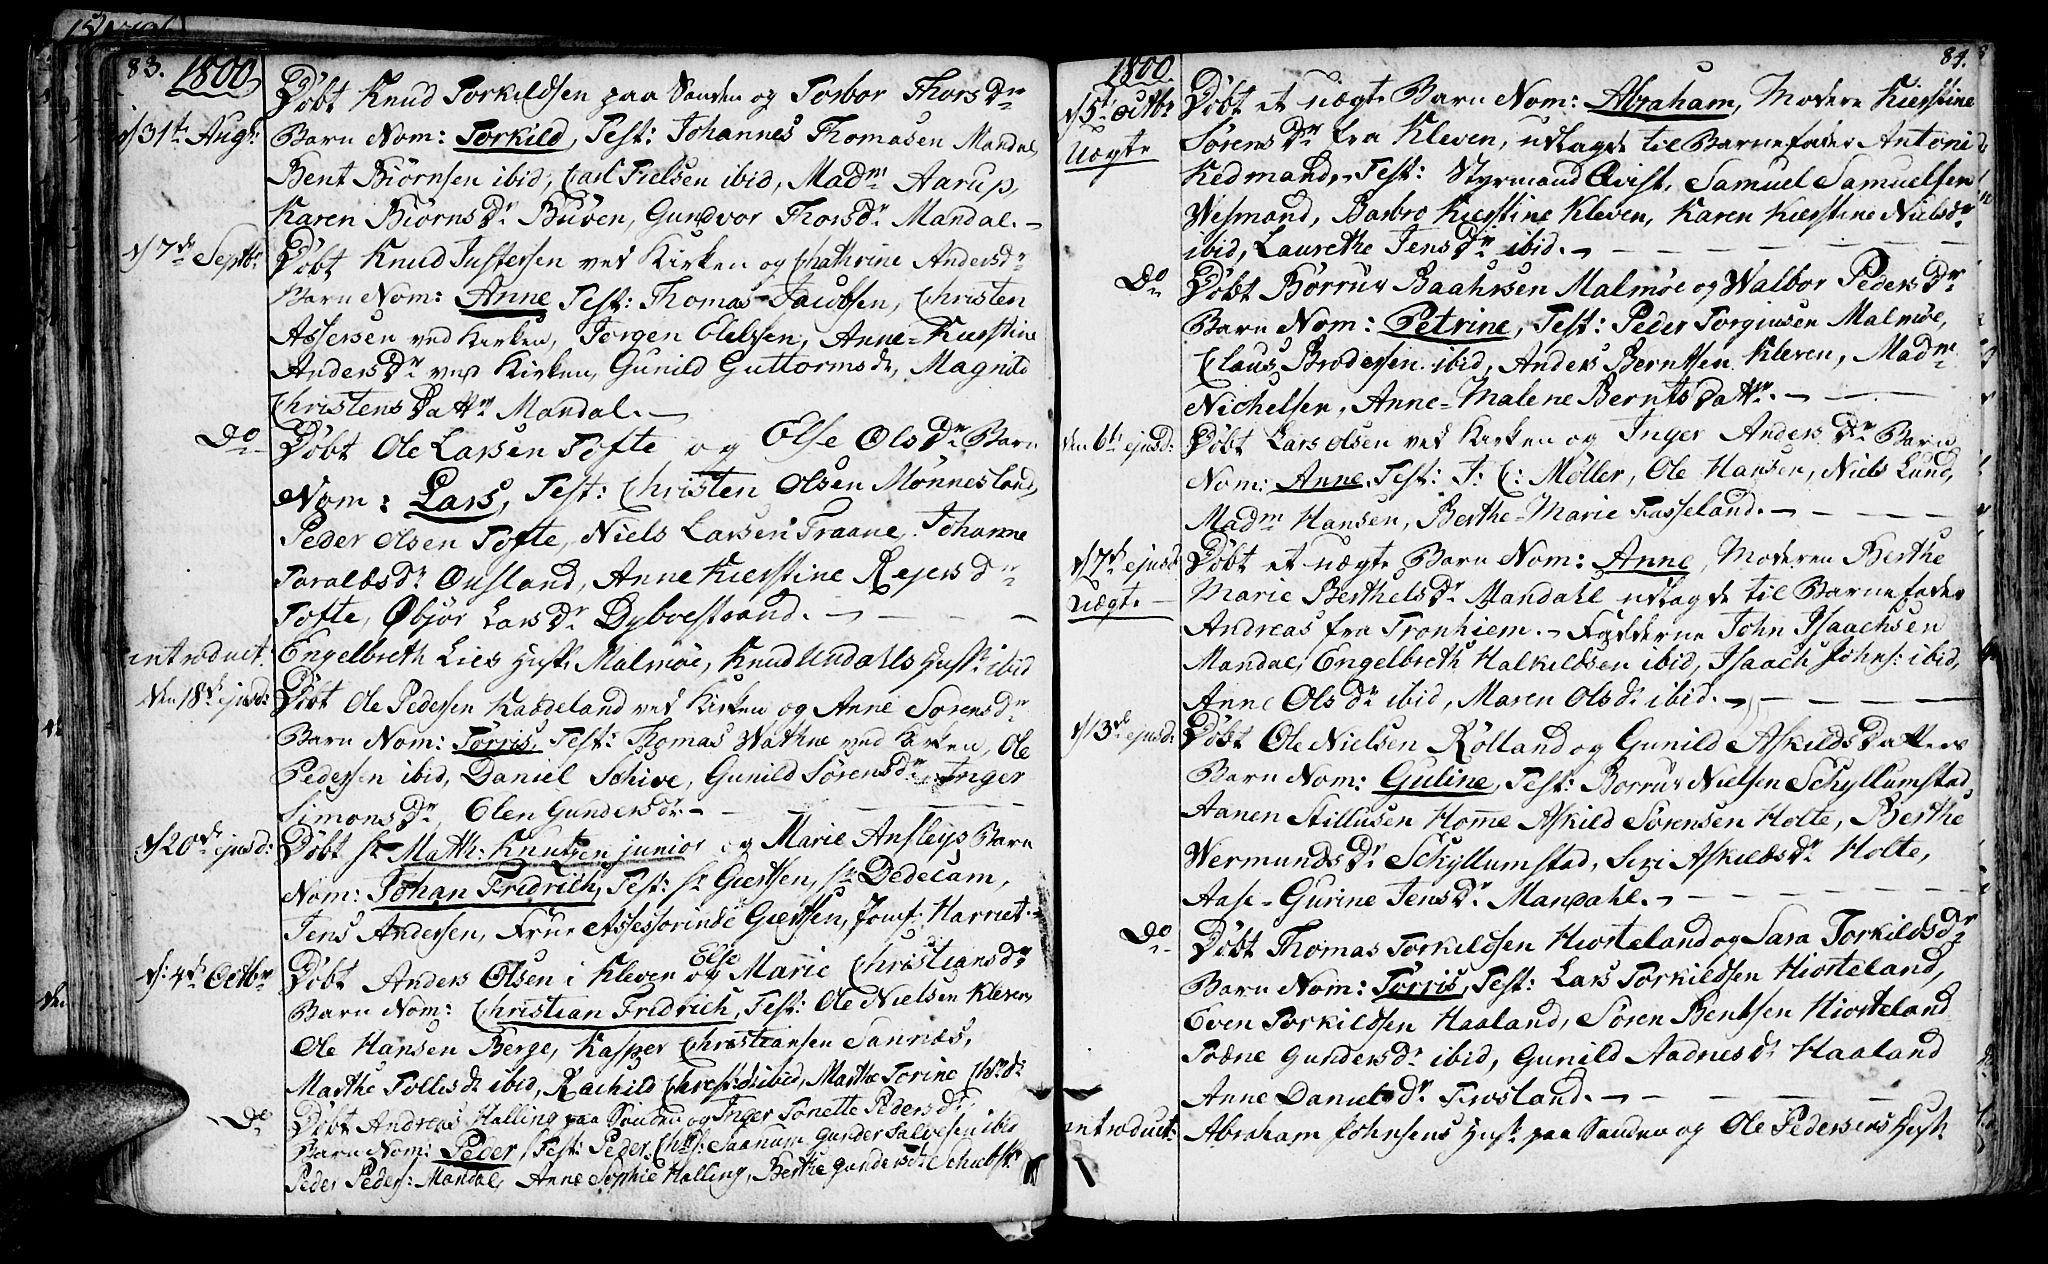 83. 1800
d/ 31te Augs: Døbt Knud Torkildsen paa Sanden og Torbor Thors Dr
Barn Nom: Torkild, Test: Johannes Thomasen Mandal,
Bent Biørnsen ibid, Carl Tielsen ibid, Madm Aarup,
Karen Biørns Dr Buøen, Gundvor Thorsdr Mandal. -
d/ 7de Septbr Døbt Knud Justersen ved Kirken og Chathrine Andersdr
Barn Nom: Anne Test: Thomas Jacobsen, Christen
Assersen ved Kirken, Jørgen Olelssen, Anne-Kierstine
Anders Dr ved Kirken, Gunild Guttormsdr, Magnild
Christens Dattr Mandal. -
Do Døbt Ole Larsen Tofte og Else Ols Dr Barn
Nom: Lars, Test: Christen Olsen Mønnesland,
Peder Olsen Tofte, Niels Larsen Fraane, Johanne
Taraldsdr Øusland, Anne Kierstine Rejers Dr
Tofte, Øbjør Lars Dr Dyboestrand. -
introduct: Engelbreth Lies Hust: Malmøe, Knud Undalls Hust: ibid
den 18de ejusd: Døbt Ole Pedersen Kaddeland ved Kirken og Anne Sørensdr
Barn Nom: Tørris, Test: Thomas Wathne ved Kirken, Ole
Pedersen ibid, Daniel Schive, Gunild Sørensdr, Inger
Simons Dr, Elen Gundersdr. -
d/ 20de ejusd: Døbt Hr Matth: Knutzen junior og Marie Ansleys Barn
Nom: Johan Fridrich, Test: Hr Giertsen, Hr Dedecam,
Jens Andersen, Frue Assessorinde Giertsen, Jomf: Harriet. -
d: 4de Octbr Døbt Anders Olsen i Kleven og Else Marie Christiansdr
Barn Nom: Christian Fridrich, Test: Ole Nielsen Kleven,
Ole Hansen Berge, Kasper Christiansen Sannæs,
Marthe Tollesdr ibid, Rachild Christ:dr ibid, Marthe Torine Chr:dr
Do Døbt Andreas Halling paa Sanden og Inger Tonette Pedersdr
Barn Nom: Peder, Test: Peder Chr: Saanum, Gunder Salvesen ibid
Peder Peders: Mandal, Anne Sophie Halling, Berthe Gundersdr
1800. 84.
d/ 5te Octbr Døbt et uægte Barn Nom: Abraham, Modere Kierstine
Uægte Sørens Dr fra Kleven, udlagde til Barnefader Antoni
Kedmand, Test: Styrmand Qvist, Samuel Samuelsen
Wesmand, Barbro Kierstine Kleven, Karen Kierstine Nielsdr
ibid, Laurethe Jens Dr ibid. -
Do Døbt Børrus Baahrsen Malmøe og Walbor Peders Dr
Barn Nom: Petrine, Test: Peder Torgiusen Malmøe,
Claus Brodersen ibid, Anders Berntsen Kleven, Madm
Nichelsen, Anne-Malene Bernts Dattr. -
den 6te ejusd: Døbt Lars Olsen ved Kirken og Inger Anders Dr Barn
Nom: Anne, Test: J: C: Møller, Ole Hansen, Niels Lund,
Madm Hansen, Berthe-Marie Fasseland. -
d/ 7de ejusd Døbt et uægte Barn Nom: Anne, Moderen Berthe
Uægte Marie Berthels Dr Mandahl udlagde til Barnefader
Andreas fra Tronhiem. - Fadderne John Isaachsen
Mandal, Engelbreth Halkildsen ibid, Isaach Johns: ibid,
Anne Ols Dr ibid, Maren Olsdr ibid. -
d/ 13de ejusd: Døbt Ole Nielsen Rølland og Gunild Askilds Datters
Barn Nom: Guline, Test: Børrus Nielsen Schyllumstad,
Aanen Stillusen Homme Askild Sørensen Holte, Berthe
Wermunds Dr Schyllumstad, Siri Askildsdr Holte,
Aase-Gurine Jens Dr Mandahl. -
Do Døbt Thomas Torkildsen Hiorteland og Sara Torkildsdr
Barn Nom: Tørris, Test: Lars Torkildsen Hiorteland,
Even Torkildsen Haaland, Søren Bentsen Hiorteland
Tædne Gundersdr ibid, Gunild Aadnesdr Haaland
Anne Daniels Dr Frøsland. -
introduct: Abraham Johnsens Hust: paa Sanden og Ole Pedersens Hust: